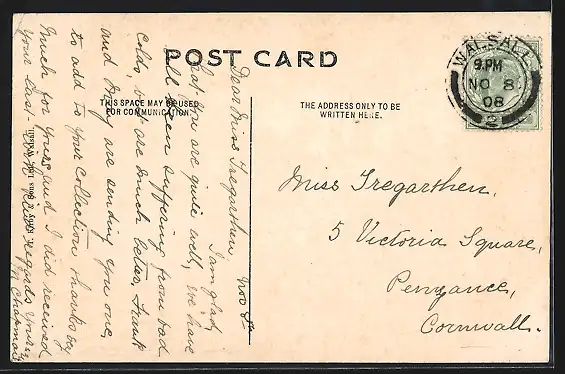 POST CARD
THIS SPACE MAY BE USED
FOR COMMUNICATION.
THE ADDRESS ONLY TO BE
WRITTEN HERE.
WALSALL
9. PM
NO 8
08
2
Nov 8th
Dear Miss Tregarthen,
I am glad,
that you are quite well, we have
all been suffering from bad
colds but are much better, Frank
and May are sending you one,
to add to your collection thanks very
much for yours and I did received
your last, with kind regards yours
Chapman
Miss Tregarthen,
5 Victoria Square,
Penzance,
Cornwall.